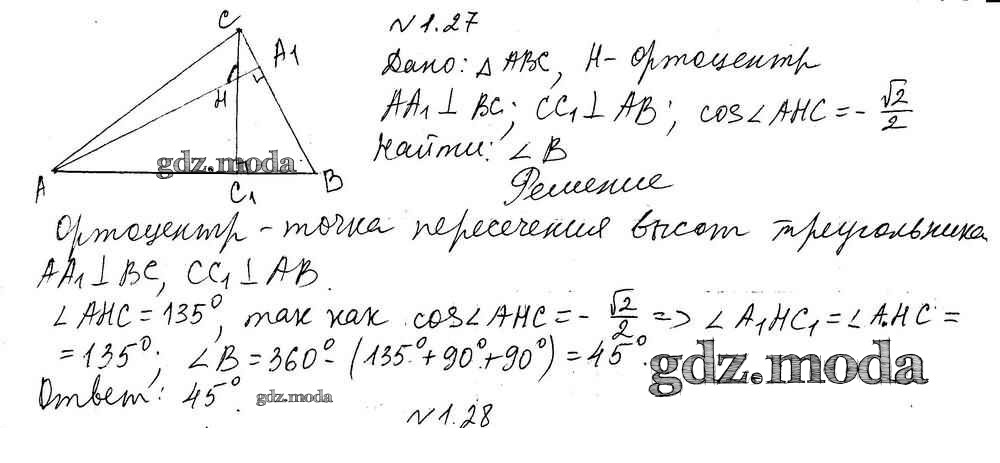 №1.27
C
A1
H
A
C1
B
gdz.moda
Дано: △ABC, H - ортоцентр
AA1 ⊥ BC; CC1 ⊥ AB; cos∠AHC = - √2/2
Найти: ∠B
Решение
Ортоцентр - точка пересечения высот треугольника
AA1 ⊥ BC, CC1 ⊥ AB.
∠AHC = 135°, так как cos∠AHC = - √2/2 => ∠A1HC1 = ∠AHC =
= 135°; ∠B = 360° - (135° + 90° + 90°) = 45°.
gdz.moda
Ответ: 45°.
gdz.moda
№1.28